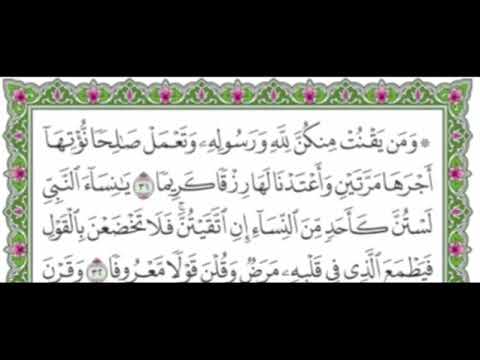 ۞ وَمَن يَقْنُتْ مِنكُنَّ لِلَّهِ وَرَسُولِهِۦ وَتَعْمَلْ صَٰلِحًا نُّؤْتِهَآ
أَجْرَهَا مَرَّتَيْنِ وَأَعْتَدْنَا لَهَا رِزْقًا كَرِيمًا ٣١ يَٰنِسَآءَ ٱلنَّبِيِّ
لَسْتُنَّ كَأَحَدٍ مِّنَ ٱلنِّسَآءِ إِنِ ٱتَّقَيْتُنَّ ۚ فَلَا تَخْضَعْنَ بِٱلْقَوْلِ
فَيَطْمَعَ ٱلَّذِي فِي قَلْبِهِۦ مَرَضٌ وَقُلْنَ قَوْلًا مَّعْرُوفًا ٣٢ وَقَرْنَ